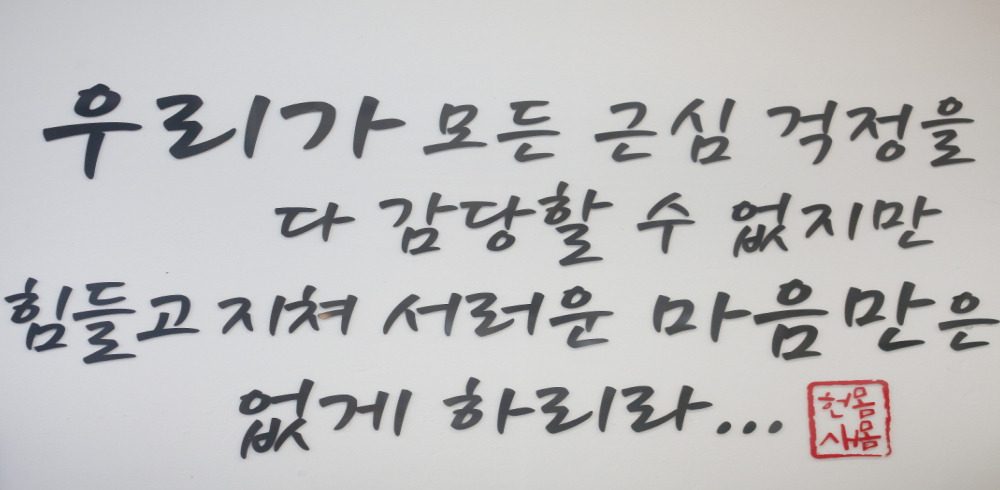 우리가 모든 근심 걱정을
다 감당할 수 없지만
힘들고 지쳐 서러운 마음만은
없게 하리라...
헌몸
새몸